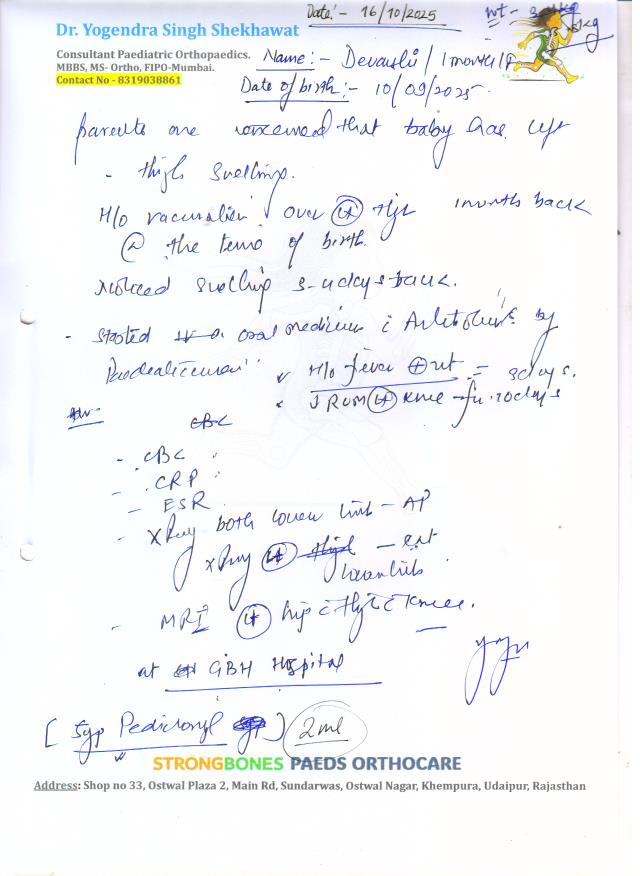 Dr. Yogendra Singh Shekhawat
Date:- 16/10/2025
wt - kg
Consultant Paediatric Orthopaedics.
MBBS, MS- Ortho, FIPO-Mumbai.
Contact No - 8319038861
Name:- Devanshi / 1 month / F
Date of birth:- 10/09/2025.
parents are concerned that baby has left
- thigh swelling.
H/o vaccination over (Lt) thigh 1 month back
@ the time of birth.
Noticed swelling 3-4 days back.
- Started oral medicine c Antibiotics by
Paediatrician
H/o fever +nt = 3 days.
↓ROM (Lt) Knee - 10 days
CBC
- CBC
- CRP
- ESR
- X Ray both lower limb - AP
X Ray (Lt) thigh - Lat
lower limb
- MRI (Lt) hip c thigh c Knee.
at GBH Hospital
[ Syp Pedicloryl ] 2ml
STRONGBONES PAEDS ORTHOCARE
Address: Shop no 33, Ostwal Plaza 2, Main Rd, Sundarwas, Ostwal Nagar, Khempura, Udaipur, Rajasthan